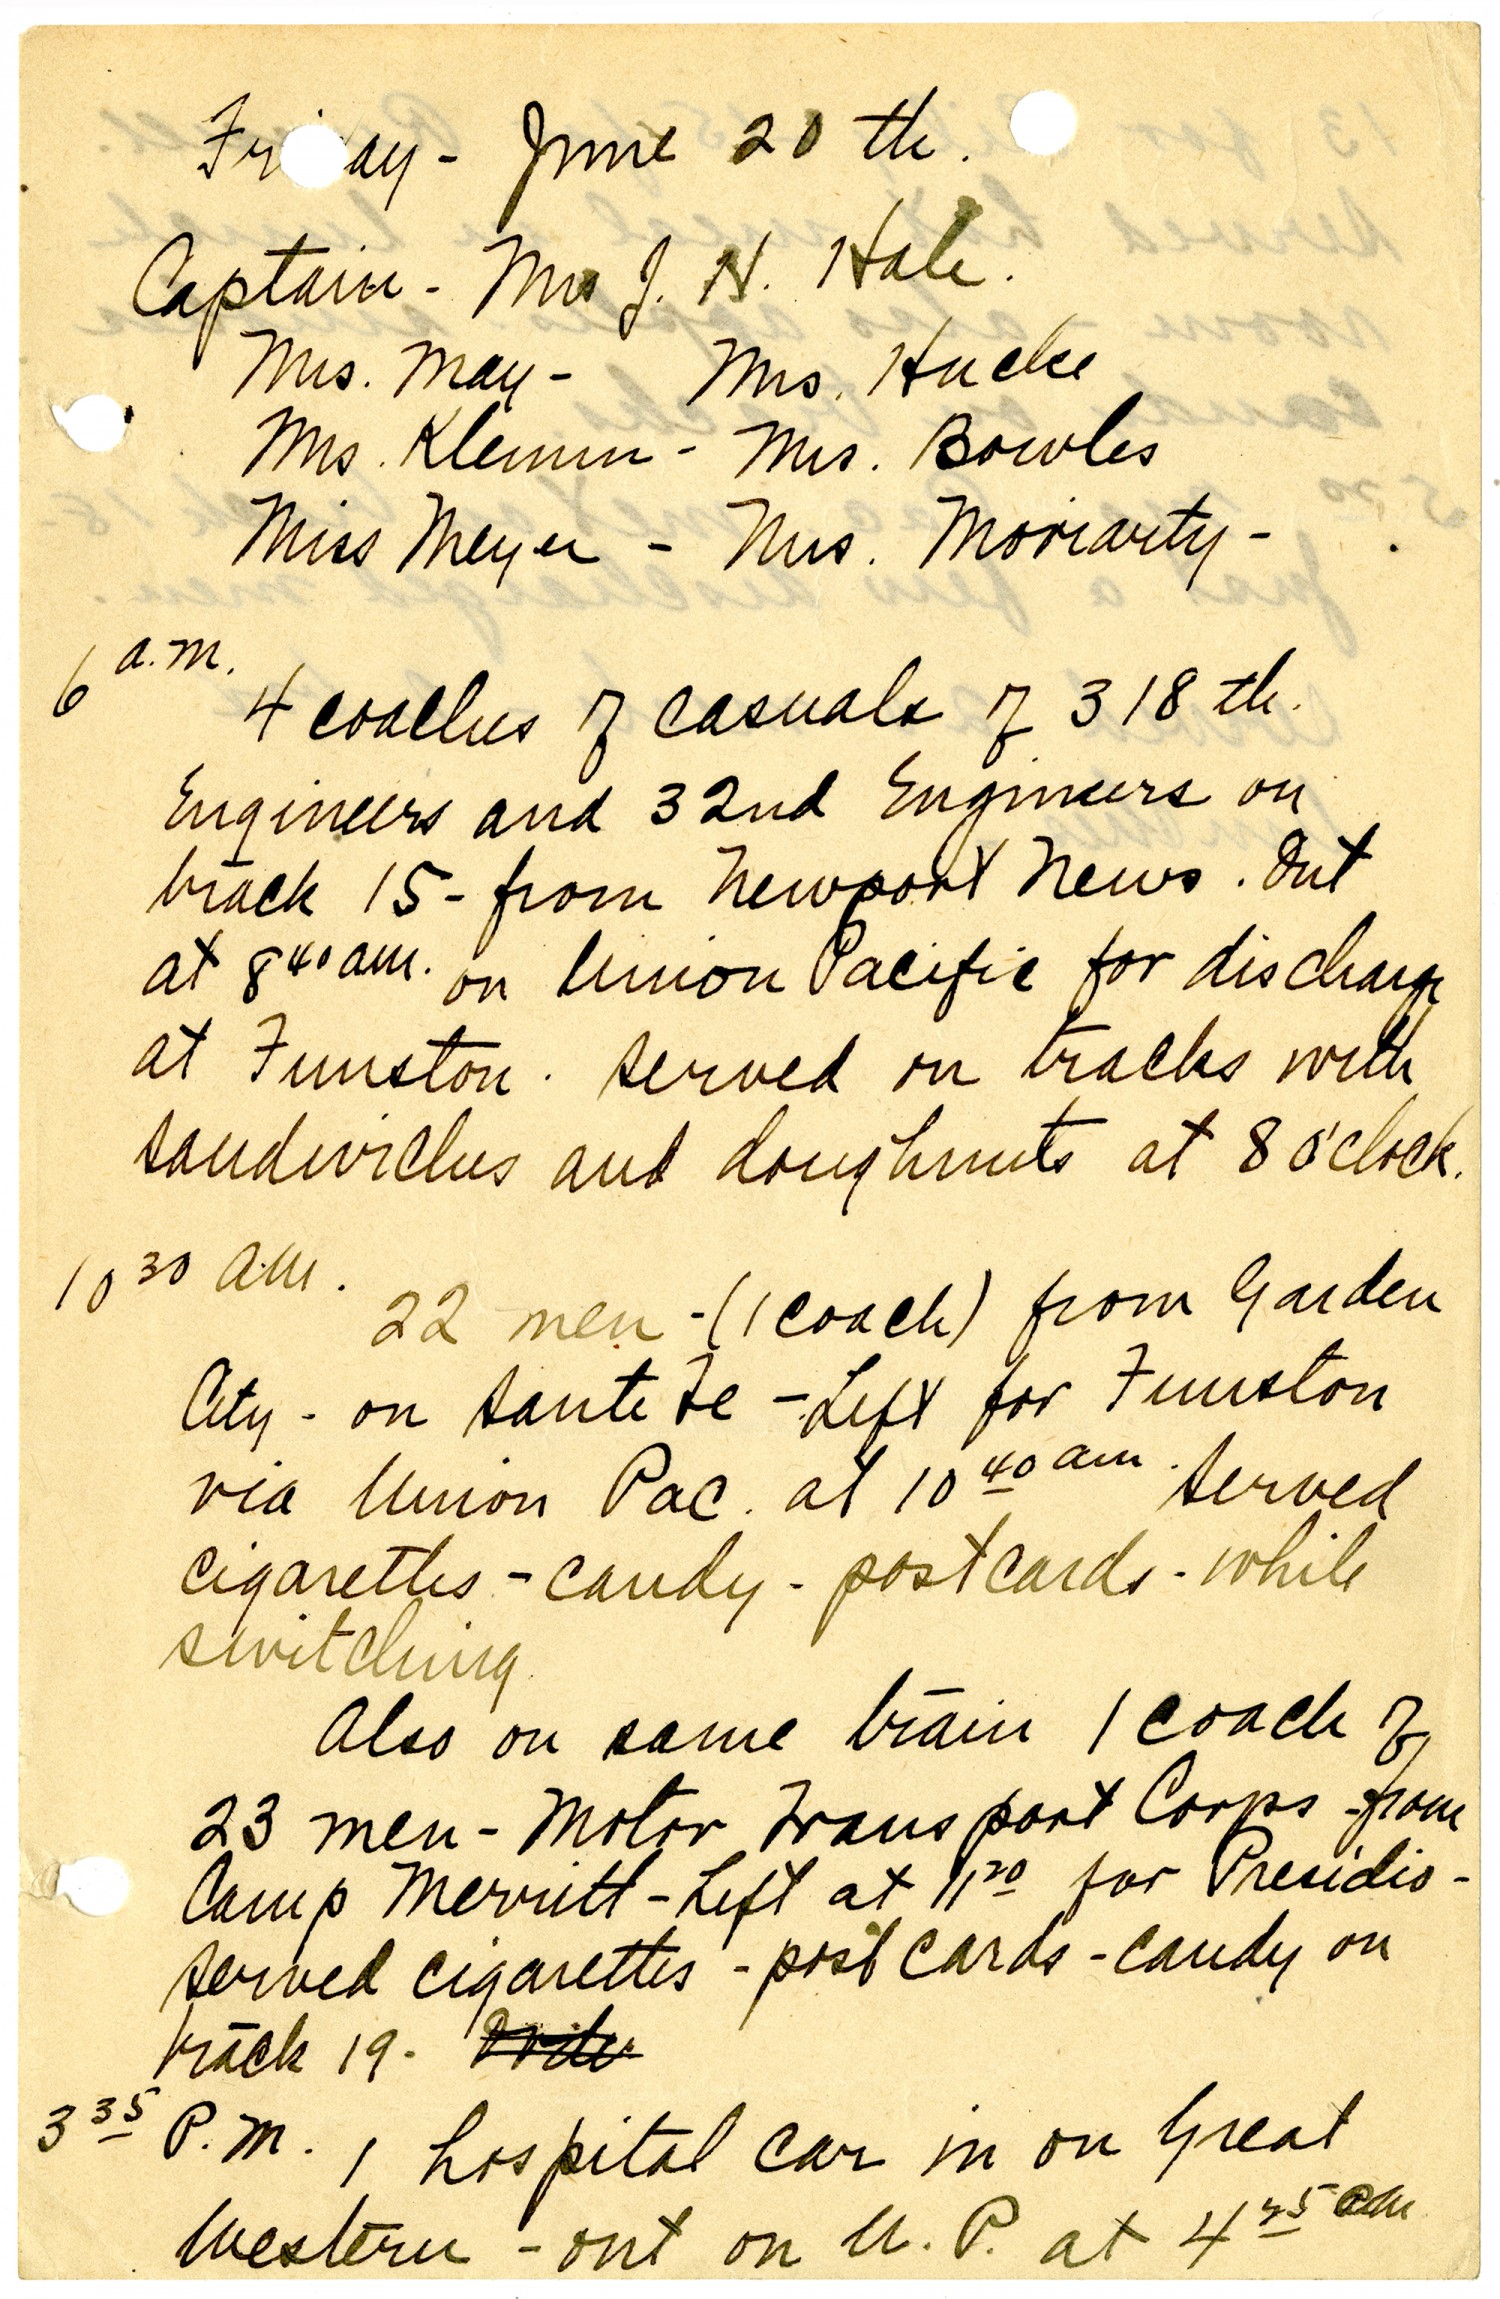 Friday - June 20th.
Captain - Mrs J. H. Hale.
Mrs. May - Mrs. Hucke
Mrs. Klemm - Mrs. Bowles
Miss Meyer - Mrs. Moriarty -
6 a.m.
4 coaches of casuals of 318th.
Engineers and 32nd Engineers on
track 15 - from Newport News. Out
at 8 40 am. on Union Pacific for discharge
at Funston. served on tracks with
sandwiches and doughnuts at 8 o'clock.
10 30 am.
22 men - (1 coach) from Garden
City - on Sante Fe - Left for Funston
via Union Pac. at 10 40 am. served
cigarettes - candy - postcards - while
switching.
Also on same train 1 coach of
23 men - Motor Transport Corps - from
Camp Merritt - Left at 11 20 for Presidio -
served cigarettes - post cards - candy on
track 19.
3 35 P.M. 1 hospital car in on Great
Western - out on U. P. at 4